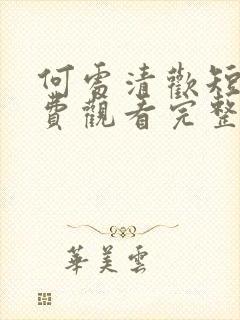 何處清歡短
費觀看完整
華美雲